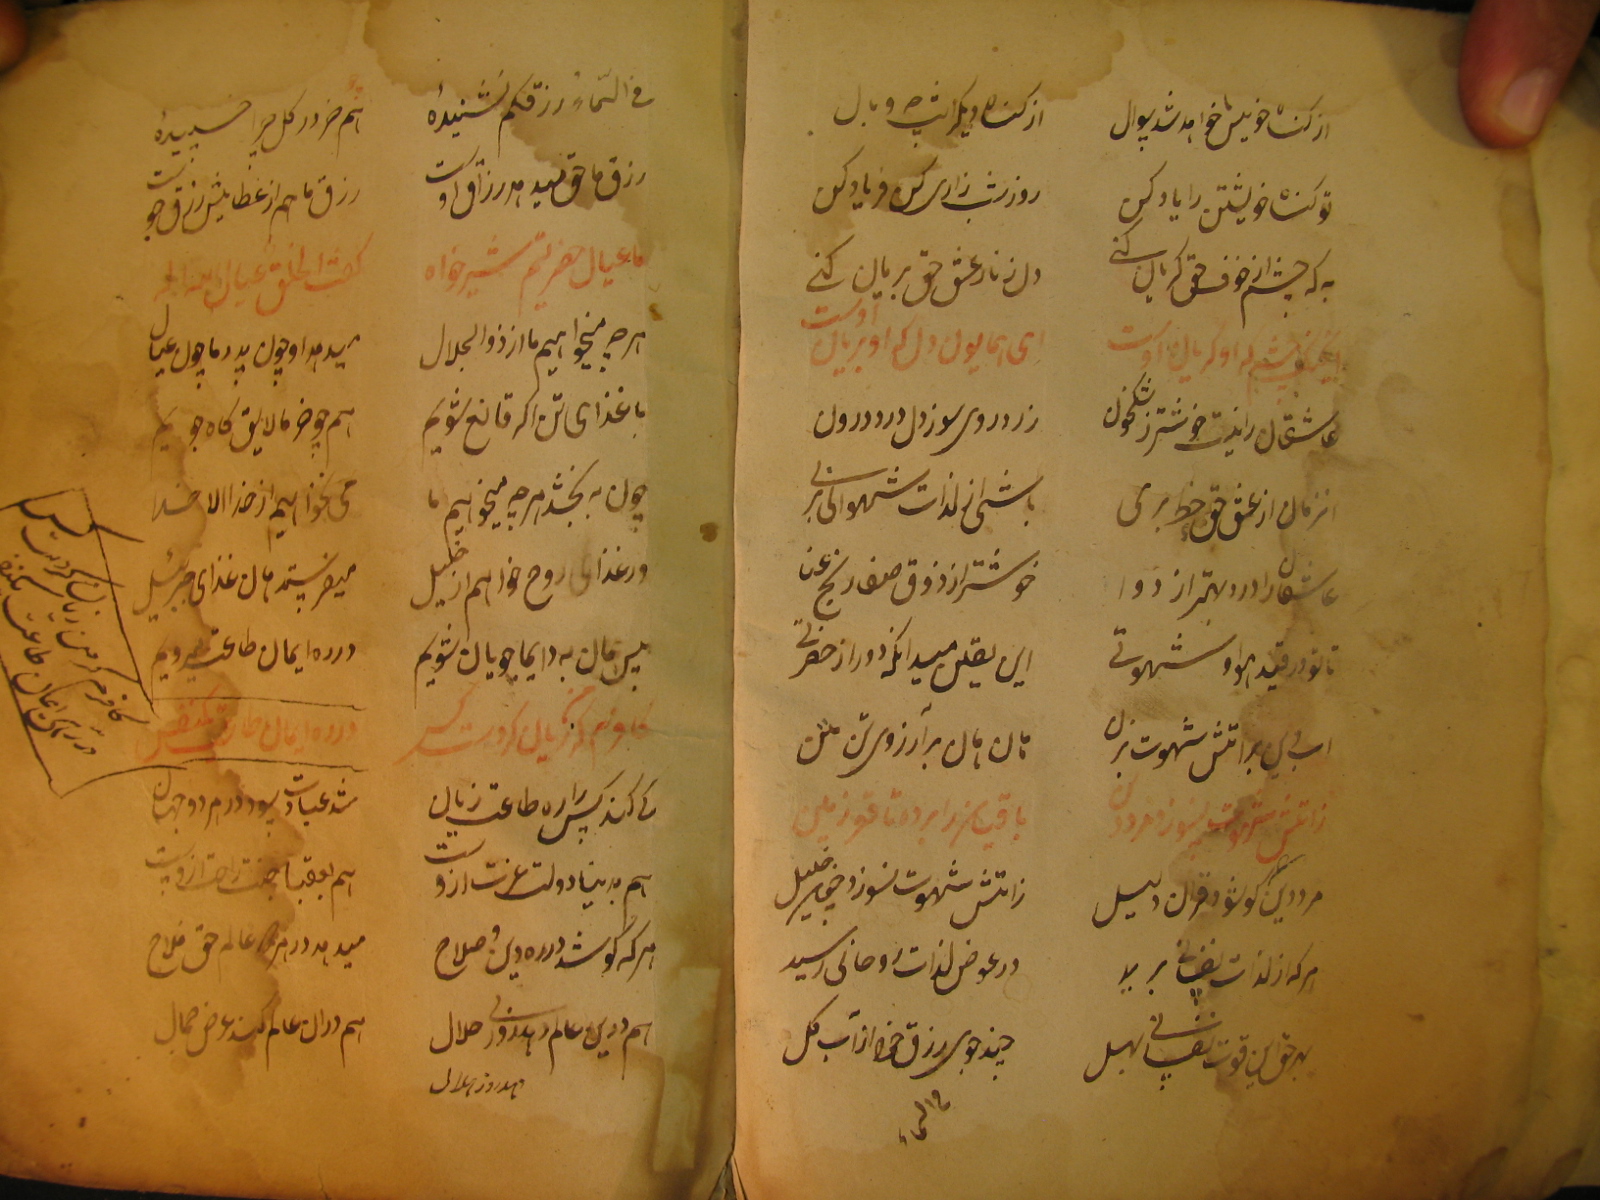 از کناه خویش خواهد شد سوال از کناه دیکران چه وبال
تو کناه خویشتن را یاد کن روز و شب زاری کن و فریاد کن
به که چشم از خوف حق کریان کنی دل ز نار عشق حق بریان کنی
چشم که او کریان اوست ای همایون دل که او بریان اوست
عاشقان را نیست خوشتر ز اشک خون زرد روی سوز دل درد درون
از عشق حق حظ بری باشی از لذات شهوانی بری
عاشقان را درد بهتر از دوا خوشتر از ذوق صفا رنج عنا
تا تو در قید هوا و شهوتی این یقین میدانکه دور از حضرتی
آب دین بر آتش شهوت بزن هان هان بر آرزوی تن متن
ز آتش شهوت نسوزد مرد دین باقیان را برده تا قعر زمین
مرد دین کر کوشود قران دلیل ز آتش شهوت نسوزد چون خلیل
هر که از لذات نفسانی برید در عوض لذات روحانی رسید
بهر حق این قوت نفسانی بهل چند جوی رزق خود از آب کل
فی السماء
فی السماء رزقکم نشنیدهٔ همچو خر در کل چرا چسپیدهٔ
رزق ما حق میدهد رزاق اوست رزق ما هم از عطایش رزق جوست
ما عیال حضرتیم شیر خواه کفت الخلق عیال للاله
هر چه میخواهیم ما از ذوالجلال میدهد او چون پدر ما چون عیال
با غذای تن اکر قانع شویم همچو خر ما لایق کاه جویم
چون به بخشد هر چه میخواهیم ما می نخواهیم از خدا الا خدا
ور غذای روح خواهیم از خلیل میفرستد مان غذای جبرئیل
پس همان به دایما جویان شویم در ره ایمان طاعت میرویم
کافرم کر من زیان کردست کس در ره ایمان طاعت یکنفس
کی کند کس را ره طاعت زیان شد عبادت سود در هر دو جهان
هم بدنیا دولت عزت ازوست هم بعقبا جنت راحت ازوست
هر که کوشد در ره دین و صلاح میدهد در هر دو عالم حق فلاح
هم درین عالم دهد روزی حلال هم دران عالم کند عرض جمال
دهد روز حلال
کافرم کر من زیان کردست کس
در ره ایمان طاعت یکنفس